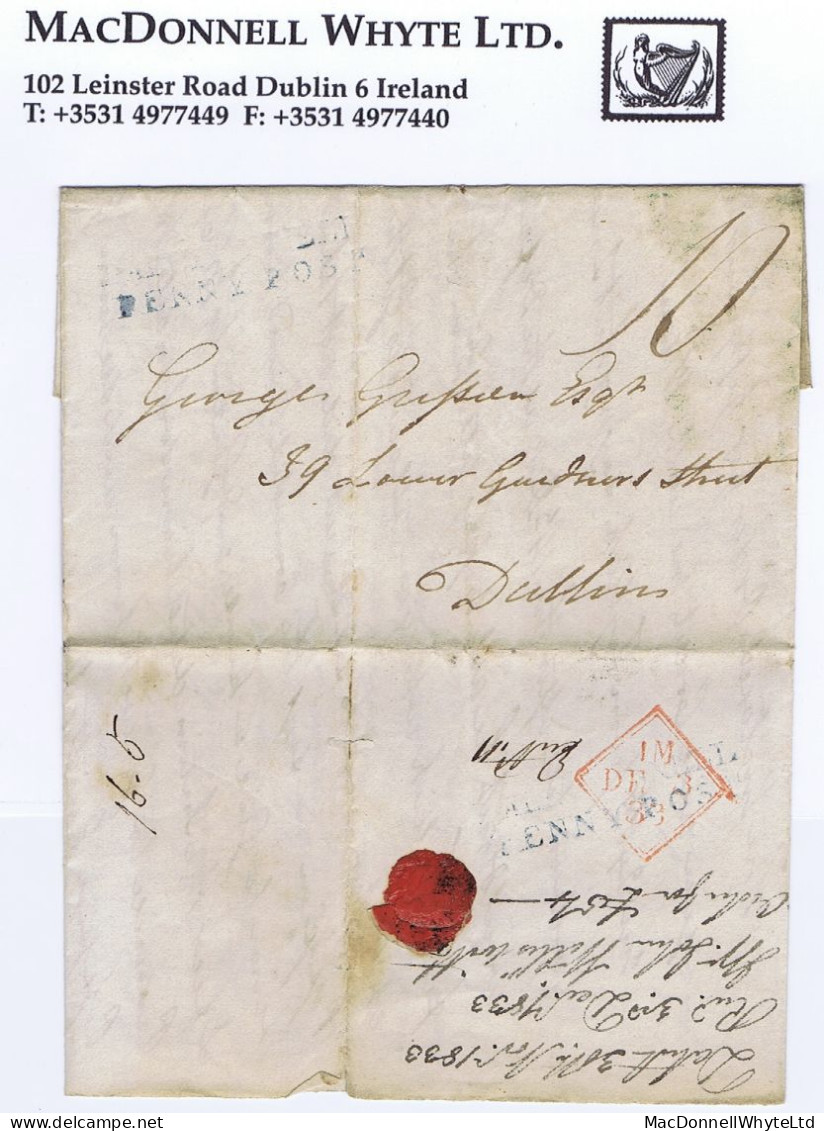 MACDONNELL WHYTE LTD.
102 Leinster Road Dublin 6 Ireland
T: +3531 4977449 F: +3531 4977440
PENNY POST
10
George Esqr
39 Lower Gardners Street
Dublin
16.5
1M
DE 3
33
PENNY POS
Order for
Mr. John
Recd. 3rd Decr. 1833
Dated 30th Novr. 1833
MacDonnellWhyteLtd